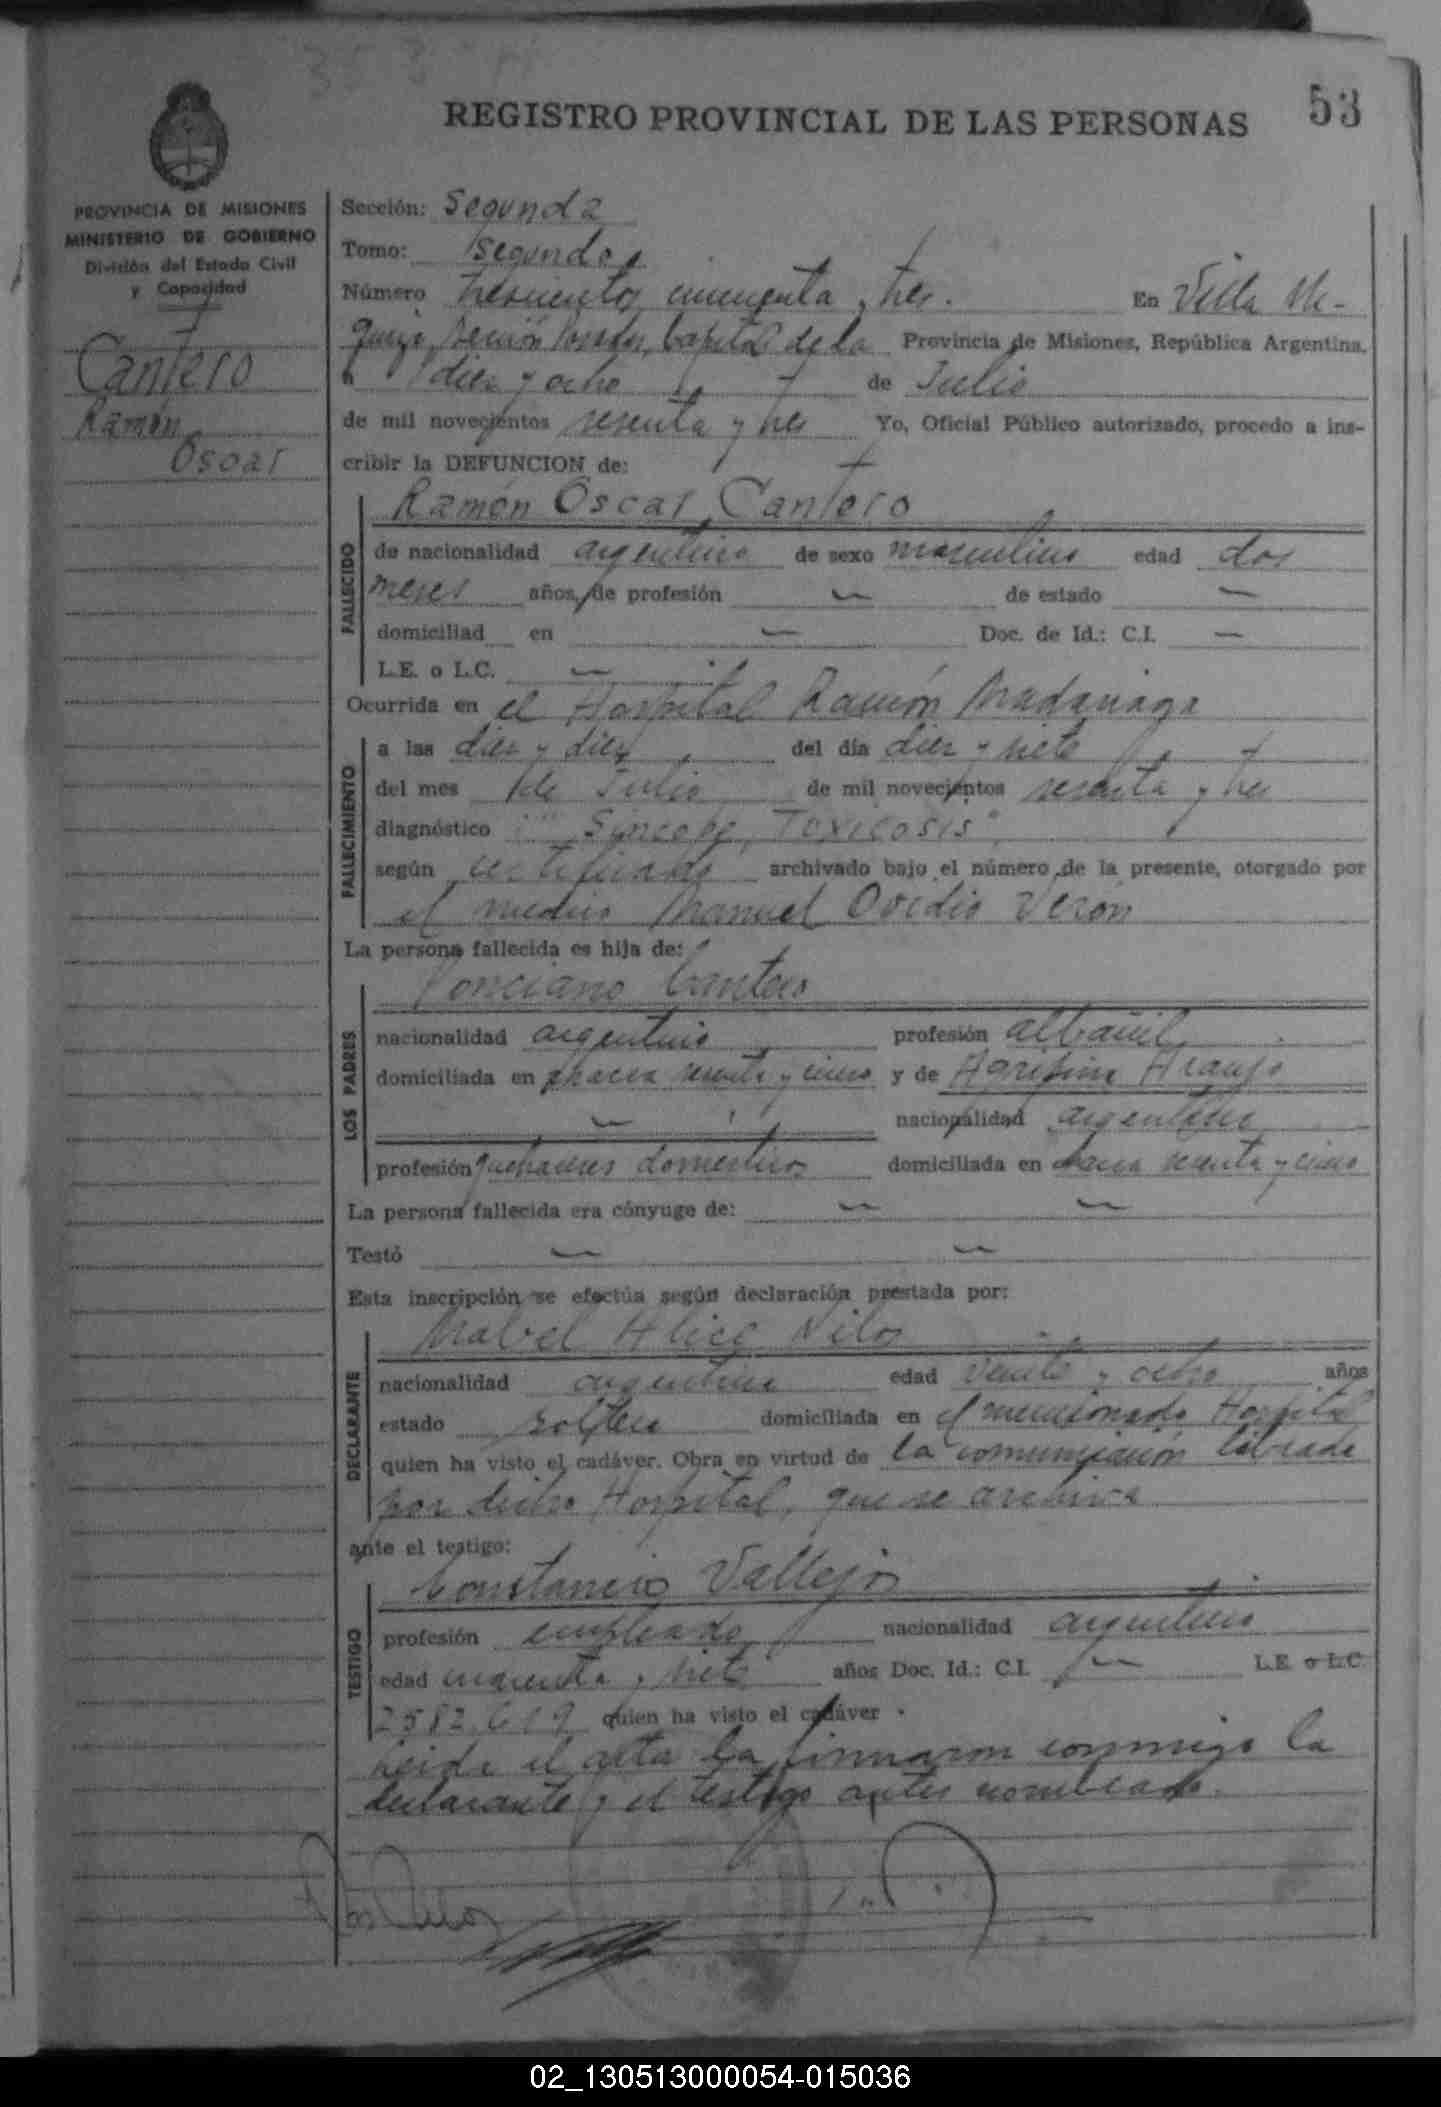 REGISTRO PROVINCIAL DE LAS PERSONAS
53
PROVINCIA DE MISIONES
MINISTERIO DE GOBIERNO
División del Estado Civil
y Capacidad
Cantero
Ramón
Oscar
Sección: Segunda
Tomo: Segundo
Número trescientos cincuenta y tres. En Villa
Capital de la Provincia de Misiones, República Argentina,
a diez y ocho de Julio
de mil novecientos sesenta y tres Yo, Oficial Público autorizado, procedo a ins-
cribir la DEFUNCION de:
Ramón Oscar Cantero
FALLECIDO
de nacionalidad argentina de sexo masculino edad dos
meses años, de profesión — de estado —
domiciliad en — Doc. de Id.: C.I. —
L.E. o L.C. —
Ocurrida en el Hospital Ramón Madariaga
FALLECIMIENTO
a las diez y diez del día diez y siete
del mes de Julio de mil novecientos sesenta y tres
diagnóstico "Síncope, Toxicosis"
según certificado archivado bajo el número de la presente, otorgado por
el médico Manuel Ovidio Verón
La persona fallecida es hija de:
Ponciano Cantero
LOS PADRES
nacionalidad argentino profesión albañil
domiciliada en chacra sesenta y cinco y de Agripina Araujo
— nacionalidad argentina
profesión quehaceres domésticos domiciliada en chacra sesenta y cinco
La persona fallecida era cónyuge de: — —
Testó — —
Esta inscripción se efectúa según declaración prestada por:
Mabel Alice
DECLARANTE
nacionalidad argentina edad veinte y ocho años
estado soltera domiciliada en el mencionado Hospital
quien ha visto el cadáver. Obra en virtud de la comunicación librada
por dicho Hospital, que se archiva
ante el testigo:
Constancio Vallejos
TESTIGO
profesión empleado nacionalidad argentino
edad y siete años Doc. Id.: C.I. — L.E. o L.C.
2582619 quien ha visto el cadáver.
Leída el acta la firmaron conmigo la
declarante y el testigo antes nombrado.
02_130513000054-015036